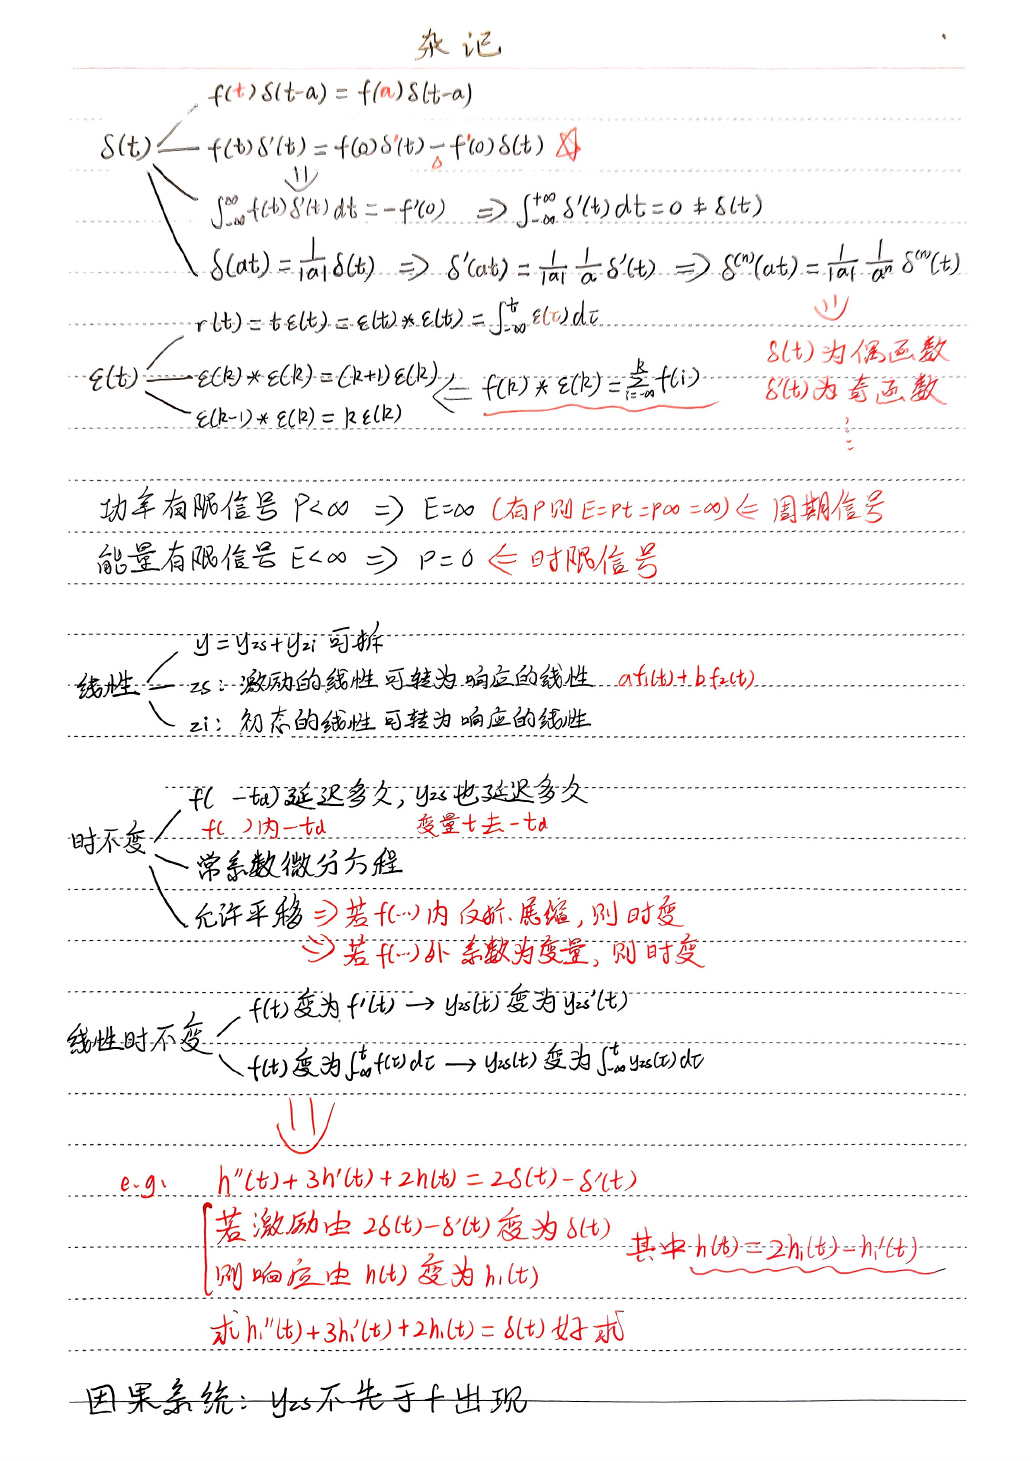 杂记
f(t)δ(t-a) = f(a)δ(t-a)
δ(t)
f(t)δ'(t) = f(0)δ'(t) - f'(0)δ(t)
∫_{-∞}^{∞} f(t)δ'(t)dt = -f'(0) ⇒ ∫_{-∞}^{+∞} δ'(t)dt = 0 ≠ δ(t)
δ(at) = 1/|a| δ(t) ⇒ δ'(at) = 1/|a| 1/a δ'(t) ⇒ δ^(n)(at) = 1/|a| 1/a^n δ^(n)(t)
r(t) = tε(t) = ε(t)*ε(t) = ∫_{-∞}^{t} ε(τ)dτ
δ(t)为偶函数
ε(t)
ε(k)*ε(k) = (k+1)ε(k) ⇐ f(k)*ε(k) = Σ_{i=-∞}^{k} f(i)
δ'(t)为奇函数
ε(k-1)*ε(k) = kε(k)
功率有限信号 P<∞ ⇒ E=∞ (有P则E=Pt=P∞=∞) ⇐ 周期信号
能量有限信号 E<∞ ⇒ P=0 ⇐ 时限信号
y = yzs + yzi 可拆
线性
zs: 激励的线性可转为响应的线性 af₁(t)+bf₂(t)
zi: 初态的线性可转为响应的线性
f( -td)延迟多久, yzs也延迟多久
f( )内-td 变量t去-td
时不变
常系数微分方程
允许平移 ⇒ 若f(…)内反折、展缩, 则时变
⇒ 若f(…)外系数为变量, 则时变
f(t)变为f'(t) → yzs(t)变为yzs'(t)
线性时不变
f(t)变为∫_{-∞}^{t} f(τ)dτ → yzs(t)变为∫_{-∞}^{t} yzs(τ)dτ
e.g. h''(t)+3h'(t)+2h(t) = 2δ(t)-δ'(t)
若激励由 2δ(t)-δ'(t)变为δ(t)
其中h(t)=2h₁(t)-h₁'(t)
则响应由 h(t) 变为h₁(t)
求h₁''(t)+3h₁'(t)+2h₁(t) = δ(t) 好求
因果系统: yzs不先于f出现